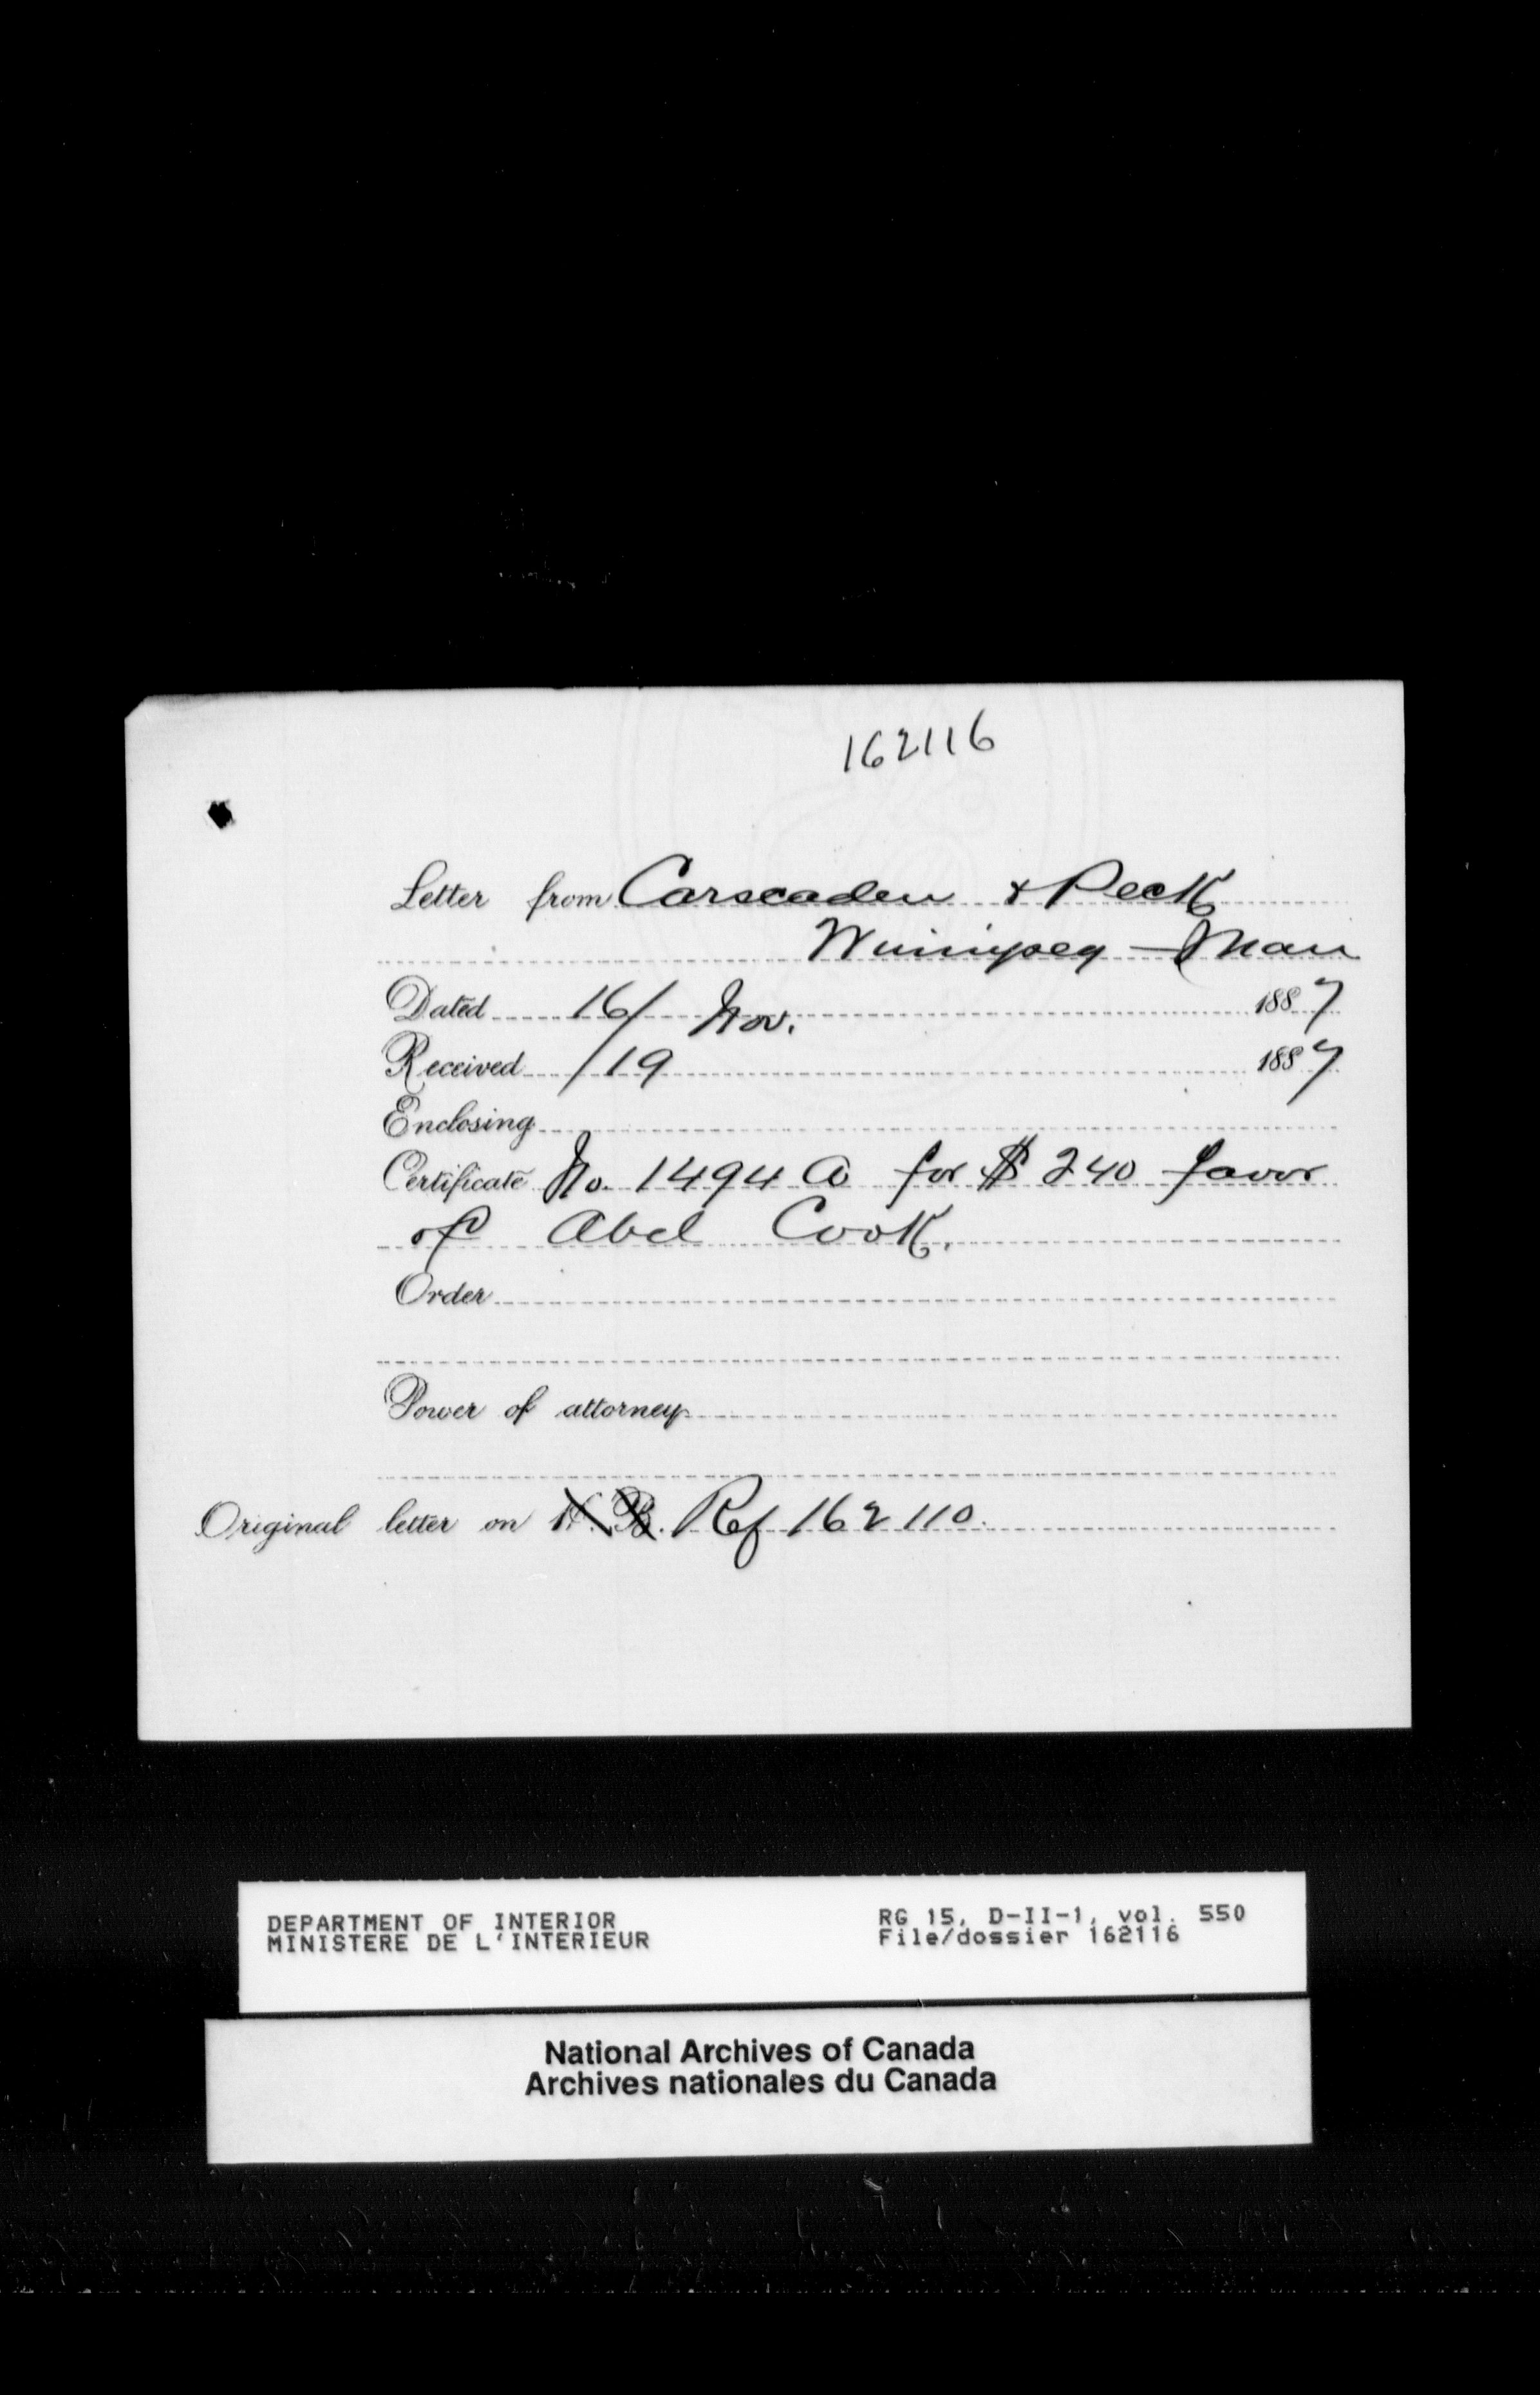 162116
Letter from Carscaden & Peck
Winnipeg - Man
Dated 16/ Nov. 1887
Received /19 1887
Enclosing
Certificate No. 1494 A for $240 favor
of Abel Cook.
Order
Power of attorney
Original letter on H. B. Ref 162110.
DEPARTMENT OF INTERIOR
MINISTERE DE L'INTERIEUR
RG 15, D-II-1, vol. 550
File/dossier 162116
National Archives of Canada
Archives nationales du Canada